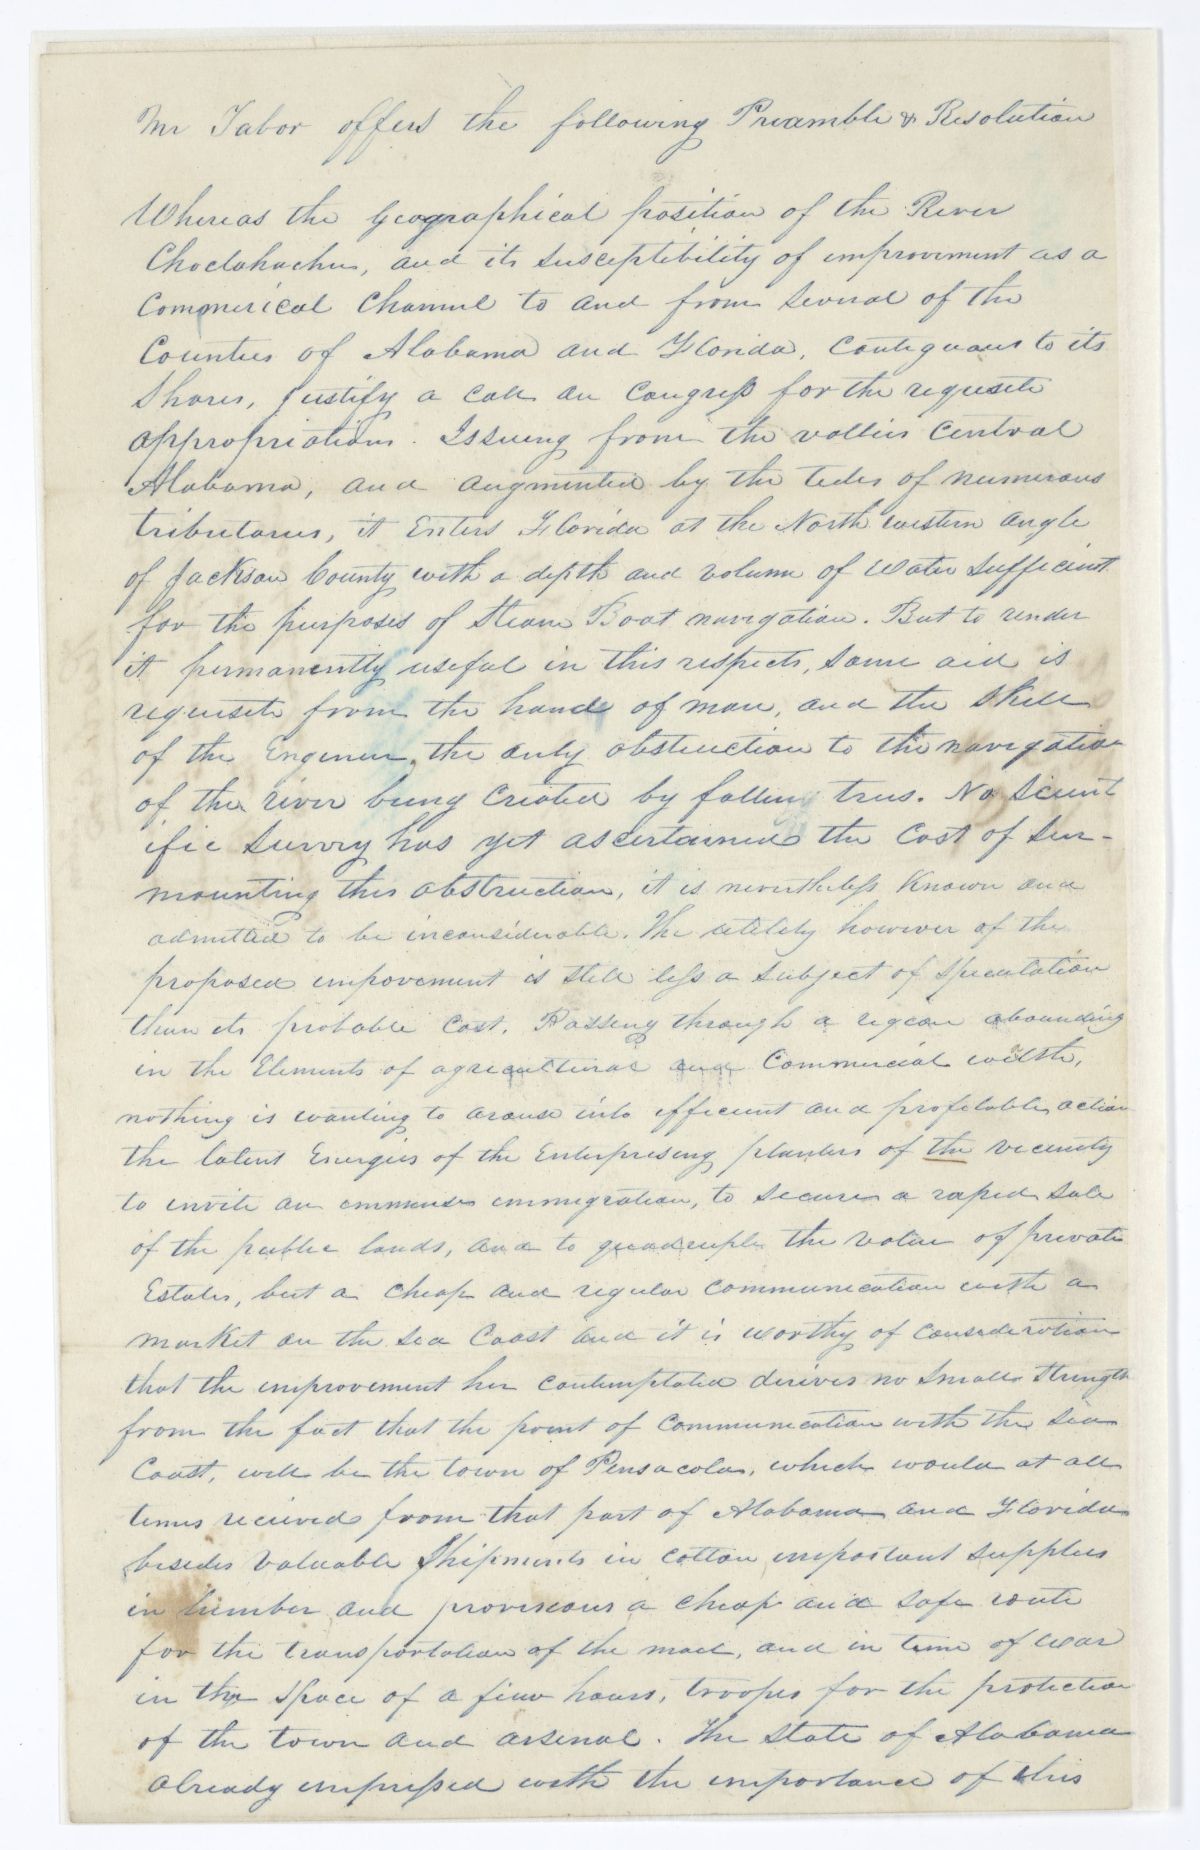 Mr Tabor offers the following Preamble & Resolution
Whereas the Geographical position of the River
Choctahachee, and its susceptibility of improvement as a
Commerical Channel to and from several of the
Counties of Alabama and Florida, contiguous to its
Shores, justify a call on Congress for the requisite
appropriations. Issuing from the vallies Central
Alabama, and augmented by the tides of numerous
tributaries, it Enters Florida at the North western angle
of Jackson County with a depth and volume of water sufficient
for the purposes of Steam Boat navigation. But to render
it permanently useful in this respects, some aid is
requisite from the hand of man, and the skill
of the Engineer, the only obstruction to the navigation
of the river being created by fallen trees. No Scient
ific Survey has yet ascertained the Cost of Sur-
mounting this obstruction, it is nevertheless Known and
admitted to be inconsiderable. The utility however of the
proposed impovement is still less a subject of speculation
than its probable cost. Passing through a region abounding
in the Elements of agricultural and Commercial wealth,
nothing is wanting to arouse into efficient and profitable action
the latent Energies of the Enterprising planters of the vicinity
to invite an immense immigration, to secure a rapid sale
of the public lands, and to quadruple the value of private
Estates, but a cheap and regular communication with a
market on the sea Coast and it is worthy of consideration
that the improvement her contemplated derives no small strength
from the fact that the point of communication with the Sea
Coast, will be the town of Pensacola, which would at all
times recieved from that part of Alabama and Florida
besides valuable Shipments in cotton important supplies
in lumber and provisions a cheap and safe route
for the transportation of the mail, and in time of war
in the space of a few hours, troops for the protection
of the town and arsenal. The State of Alabama
already impressed with the importance of this